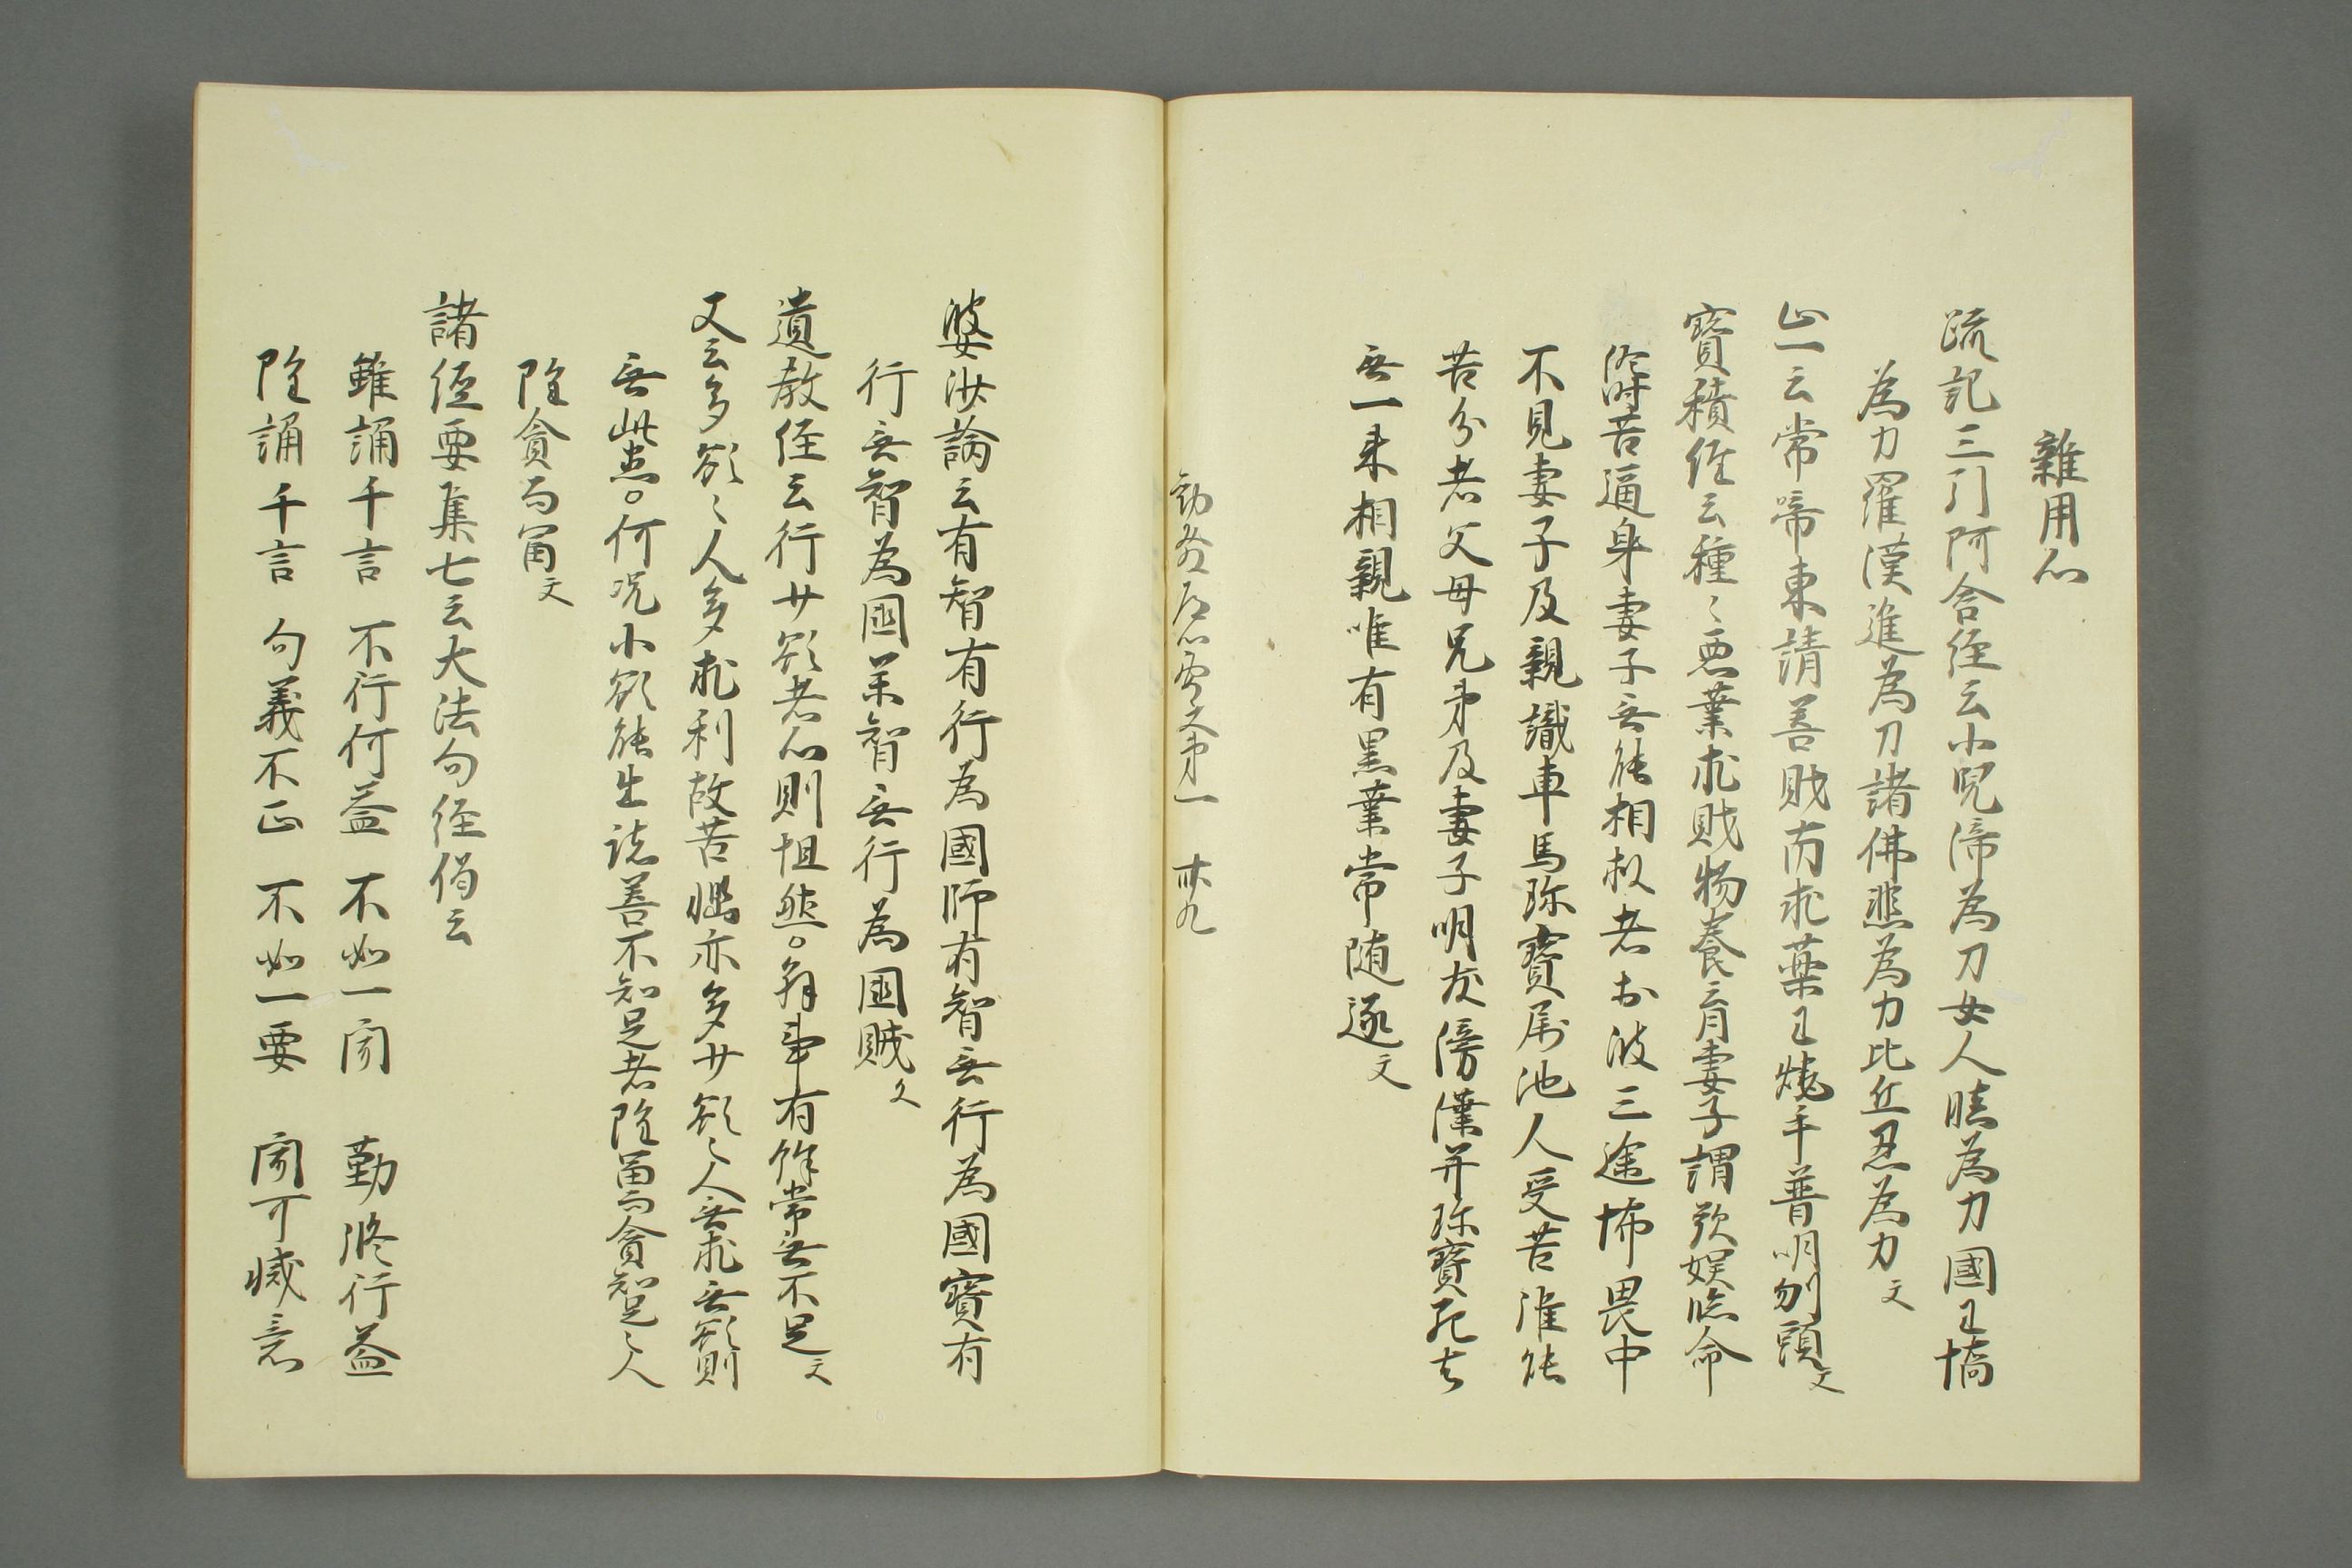 雜用心
疏記三引阿含経云小児啼為刀女人瞋為力國王憍
為力羅漢進為刀諸佛悲為力比丘忍為力文
止一云常啼東請善財南求薬王燒手普明刎頭文
寶積経云種〻悪業求財物養育妻子謂歓娯臨命
終時苦逼身妻子無能相救者於彼三途怖畏中
不見妻子及親識車馬珍寶属他人受苦誰能
苦分者父母兄弟及妻子明友僮僕并珍寶死去
無一来相親唯有黒業常随逐文
第一 卅九
婆沙論云有智有行為國師有智無行為國寶有
行無智為國業智無行為國賊文
遺教経云行少欲者心則坦然。觸事有餘常無不足文
又云多欲〻人多求利故苦悩亦多少欲〻人無求無欲則
無此患。何況小欲能生諸善不知足者雖冨而貪知足〻人
雖貪而冨文
諸経要集七云大法句経偈云
雖誦千言 不行何益 不如一聞 勤修行益
雖誦千言 句義不正 不如一要 聞可滅意